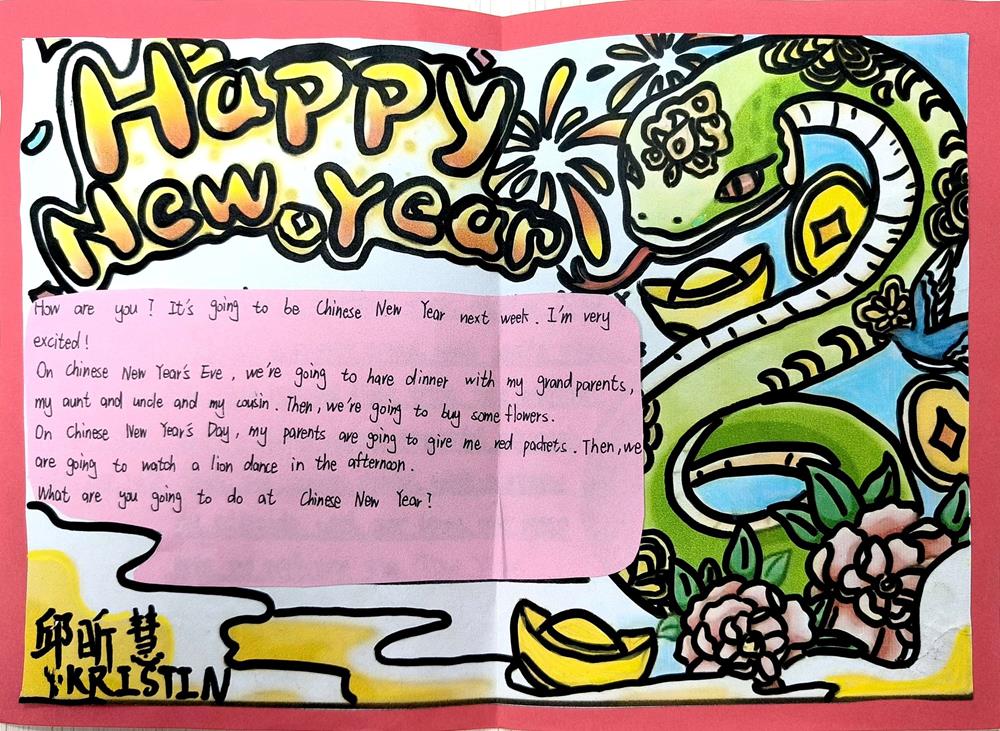 Happy
New Year
How are you? It's going to be Chinese New Year next week. I'm very
excited!
On Chinese New Year's Eve, we're going to have dinner with my grandparents,
my aunt and uncle and my cousin. Then, we're going to buy some flowers.
On Chinese New Year's Day, my parents are going to give me red packets. Then, we
are going to watch a lion dance in the afternoon.
What are you going to do at Chinese New Year?
邱昕慧
KRISTIN